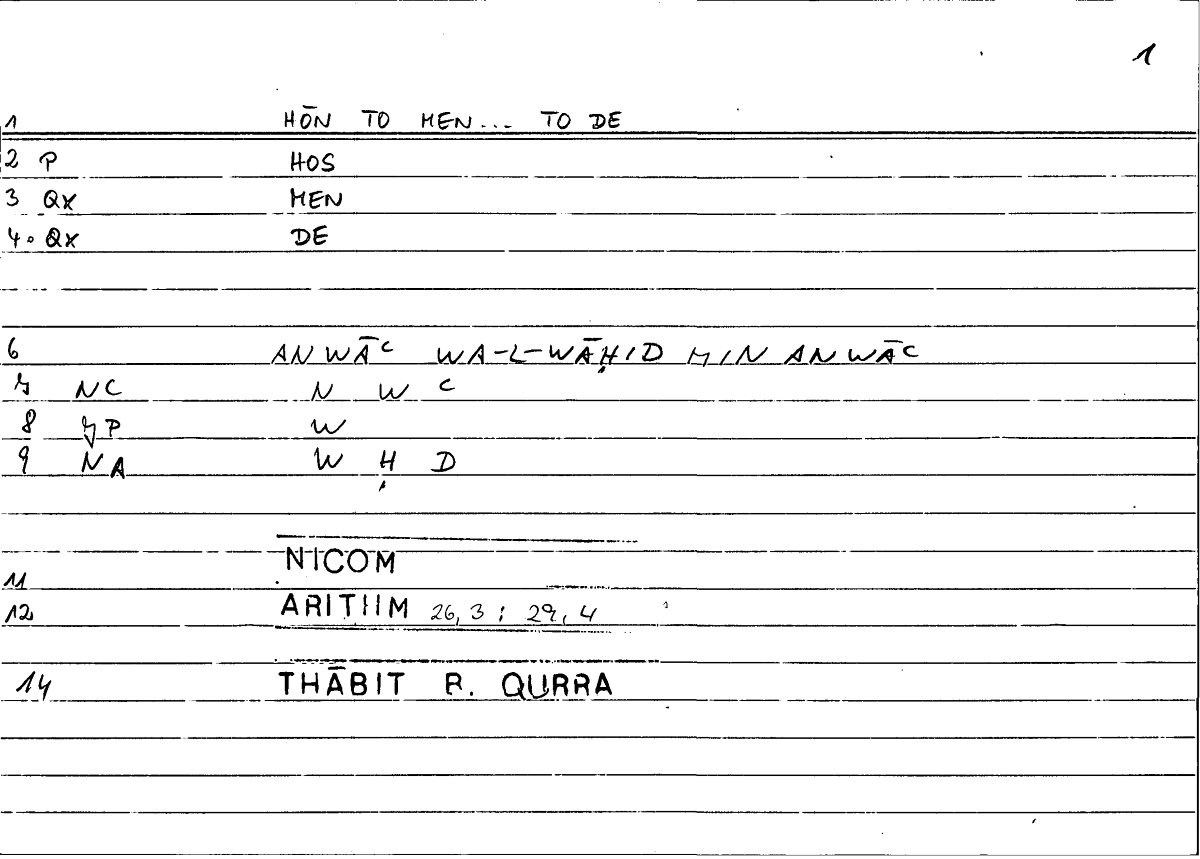 1
1 HŌN TO MEN... TO DE
2 P HOS
3 QX MEN
4. QX DE
6 ANWĀC WA-L-WĀḤID MIN ANWĀC
7 NC N W C
8 P W
9 NA W Ḥ D
NICOM
11
12 ARITIIM 26,3 ; 29,4
14 THĀBIT B. QURRA